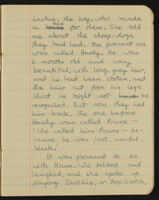 the boy, who made
a for them. She told
me about the sheep-dogs
they had had. The present one
was called Handy. He was
6 months old and very
beautiful, with long, grey hair,
and he had been stolen, and
the hair cut from his legs
that he might not be
recognised. But now they had
him back. The one before
Handy was called Prince –
"We called him Prince – be-
cause he was just awful
black".
It was pleasant to be
with them. We talked and
laughed, and she spoke of
playing sketchie, or hop-scotch,